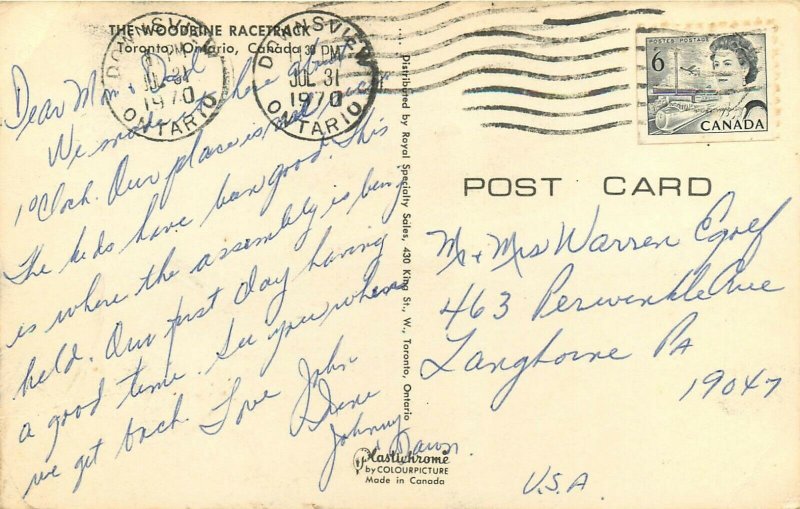 THE WOODBINE RACETRACK
Toronto, Ontario, Canada
DOWNSVIEW
JUL 31
1970
ONTARIO
DOWNSVIEW
PM
JUL 31
1970
ONTARIO
POSTES POSTAGE
6
CANADA
Dear Mom & Dad
We made it here about
1 o'Clock. Our place is real nice.
The kids have been good. This
is where the assembly is being
held. Our first day having
a good time. See you when
we get back. Love John
Irene
Johnny
& Dawn.
Distributed by Royal Specialty Sales, 430 King St., W., Toronto, Ontario
Plastichrome
by COLOURPICTURE
Made in Canada
POST CARD
Mr + Mrs Warren Egolf
463 Periwinkle Ave
Langhorne PA
19047
U.S.A.